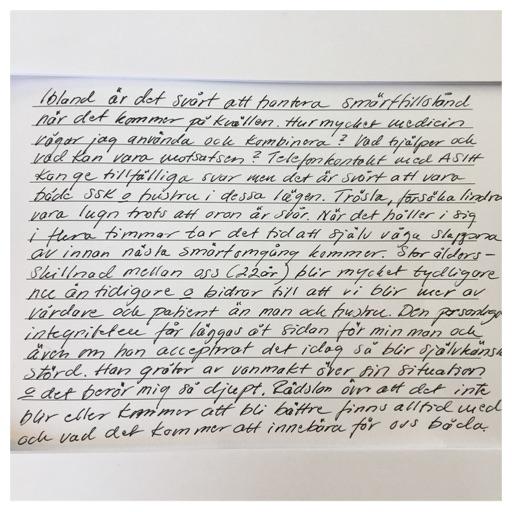 Ibland är det svårt att hantera smärttillstånd
när det kommer på kvällen. Hur mycket medicin
vågar jag använda och kombinera? Vad hjälper och
vad kan vara motsatsen? Telefonkontakt med ASIH
kan ge tillfälliga svar men det är svårt att vara
både SSK o hustru i dessa lägen. Trösta, försöka lindra
vara lugn trots att oron är svår. När det håller i sig
i flera timmar tar det tid att själv våga slappna
av innan nästa smärtomgång kommer. Stor ålders-
skillnad mellan oss (22år) blir mycket tydligare
nu än tidigare o bidrar till att vi blir mer av
vårdare och patient än man och hustru. Den personliga
integriteten får läggas åt sidan för min man och
även om han accepterat det idag så blir självkänsla
störd. Han gråter av vanmakt över sin situation
o det berör mig så djupt. Rädslan över att det inte
blir eller kommer att bli bättre finns alltid med
och vad det kommer att innebära för oss båda